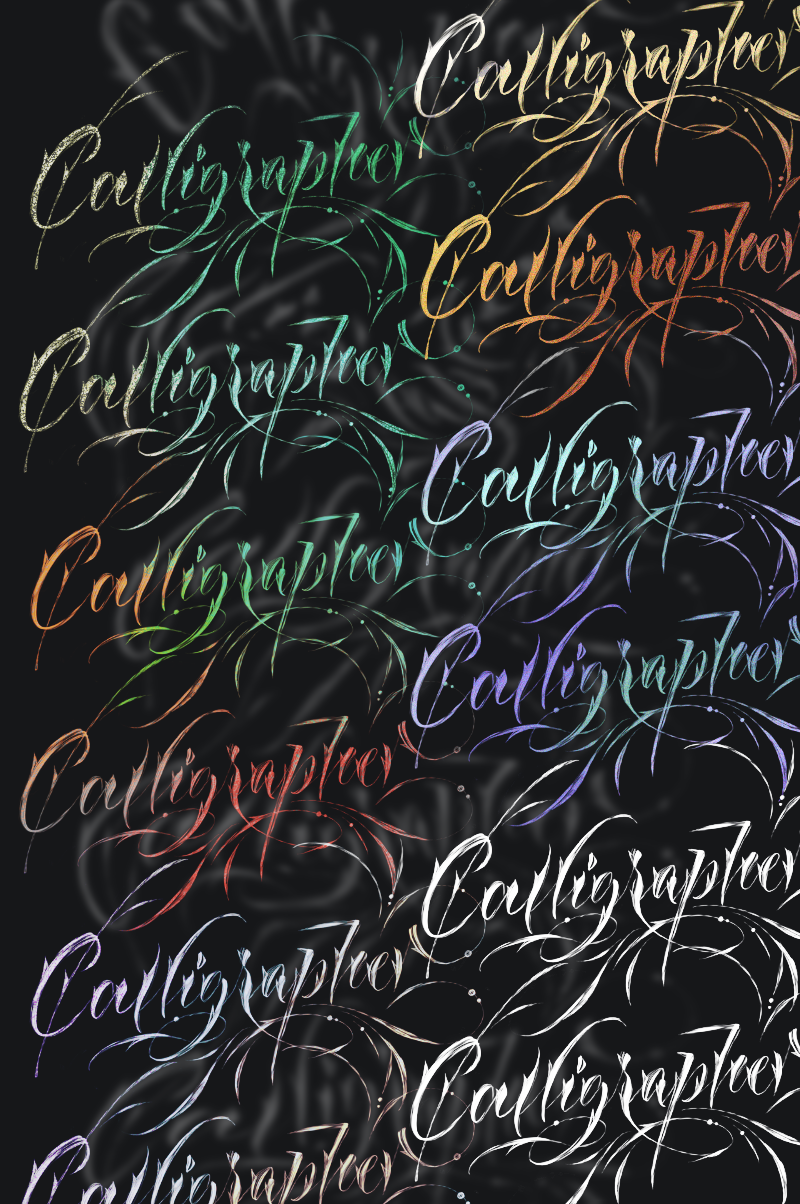 Calligrapher
Calligrapher
Calligrapher
Calligrapher
Calligrapher
Calligrapher
Calligrapher
Calligrapher
Calligrapher
Calligrapher
Calligrapher
Calligrapher